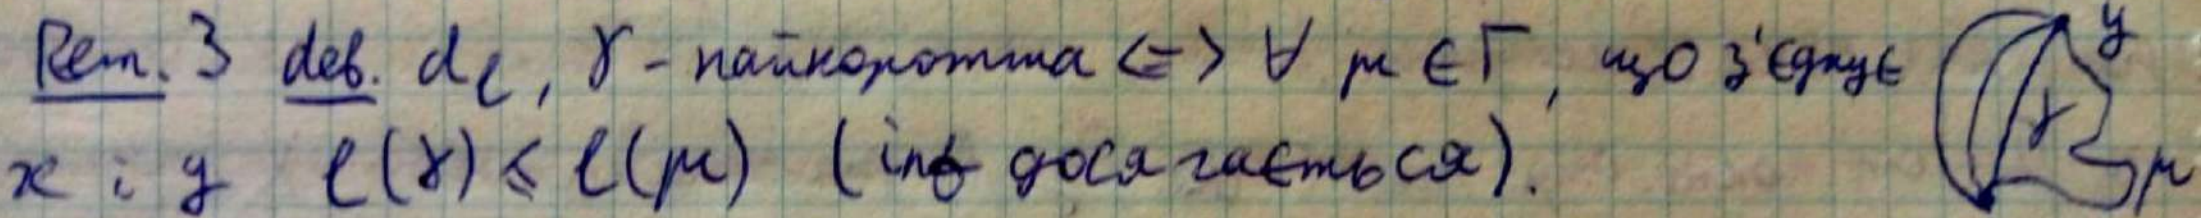 Rem. З def. dₗ, γ - найкоротша <=> ∀ μ ∈ Γ, що з'єднує y
x і y l(γ) ≤ l(μ) (inf досягається). γ μ